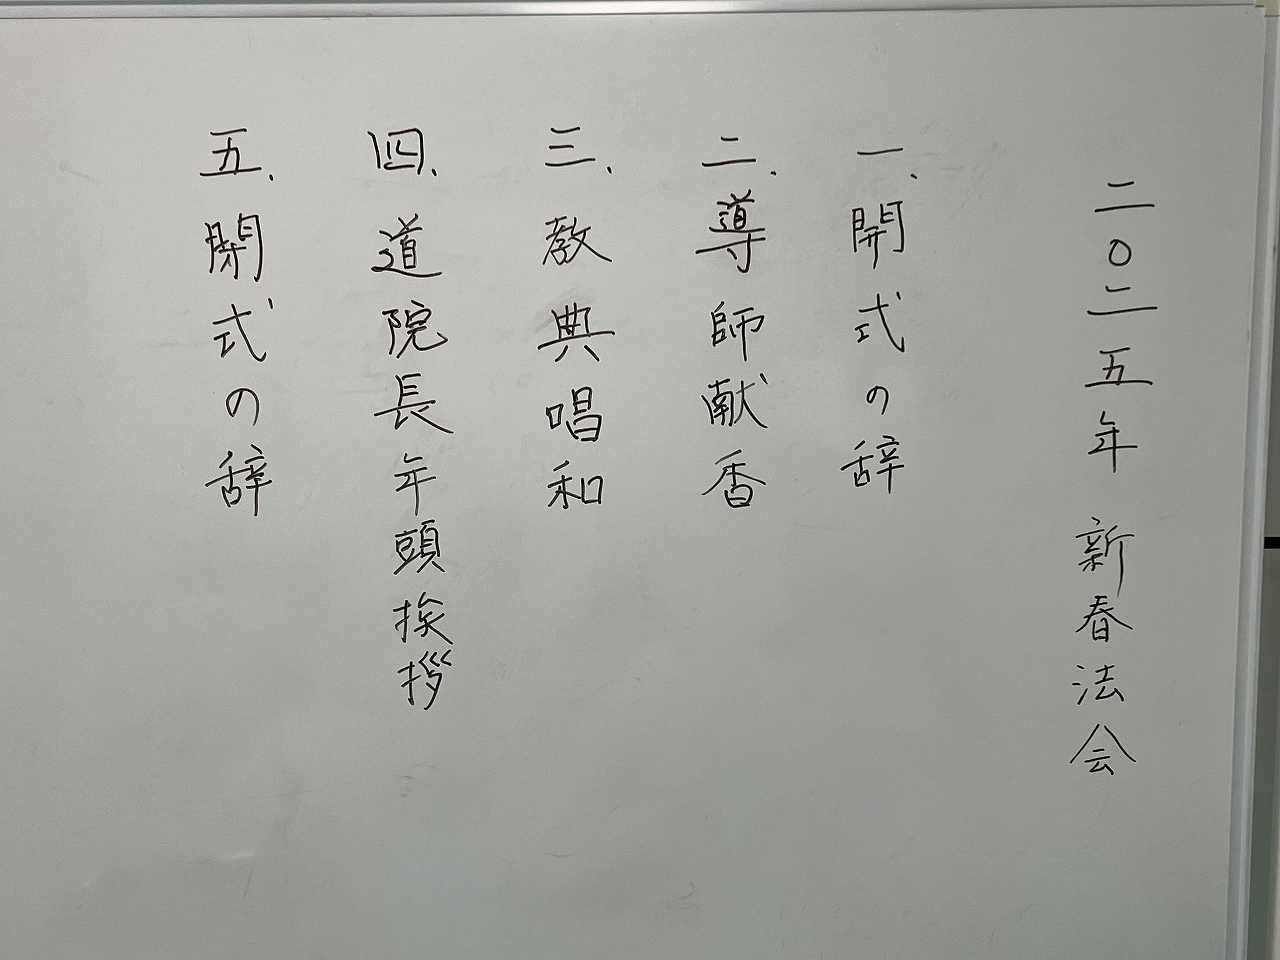 二〇二五年 新春法会
一、開式の辞
二、導師献香
三、教典唱和
四、道院長年頭挨拶
五、閉式の辞